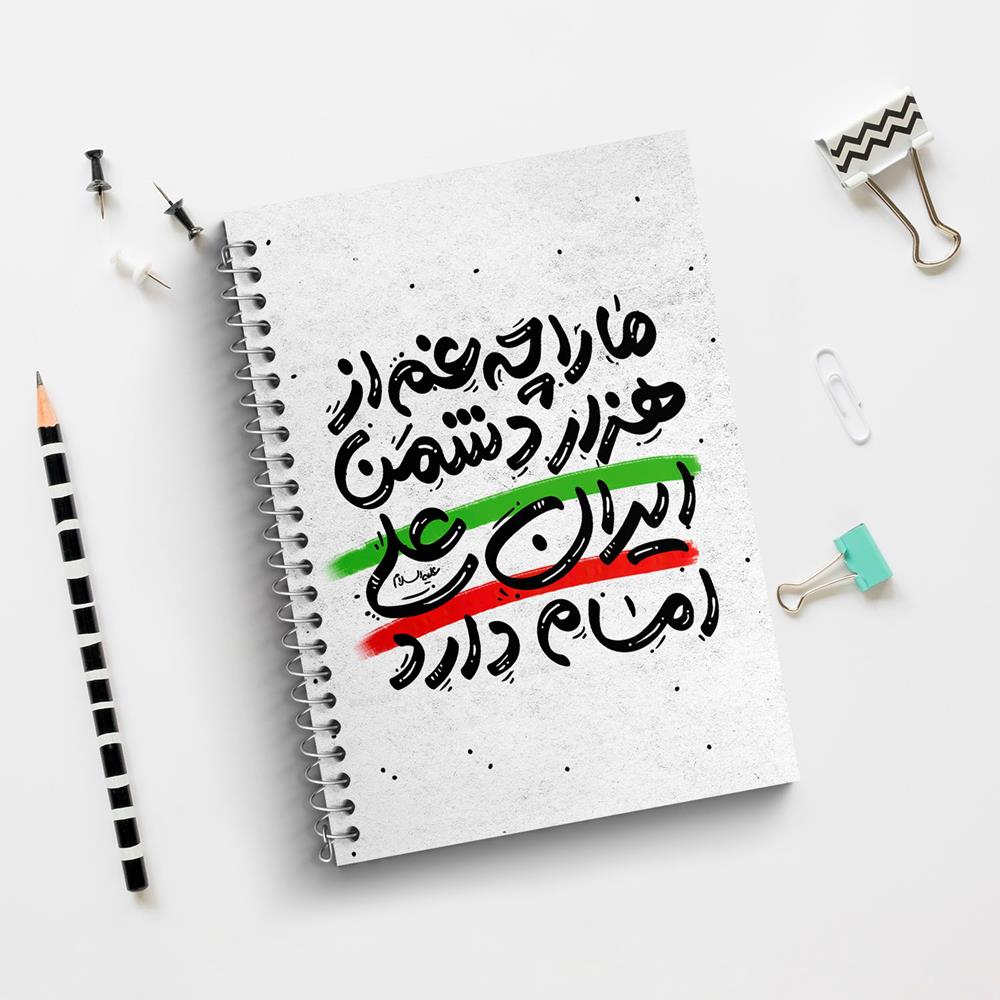 ما را چه غم از
هزار دشمن
ایران علی
علیه‌السلام
امام دارد